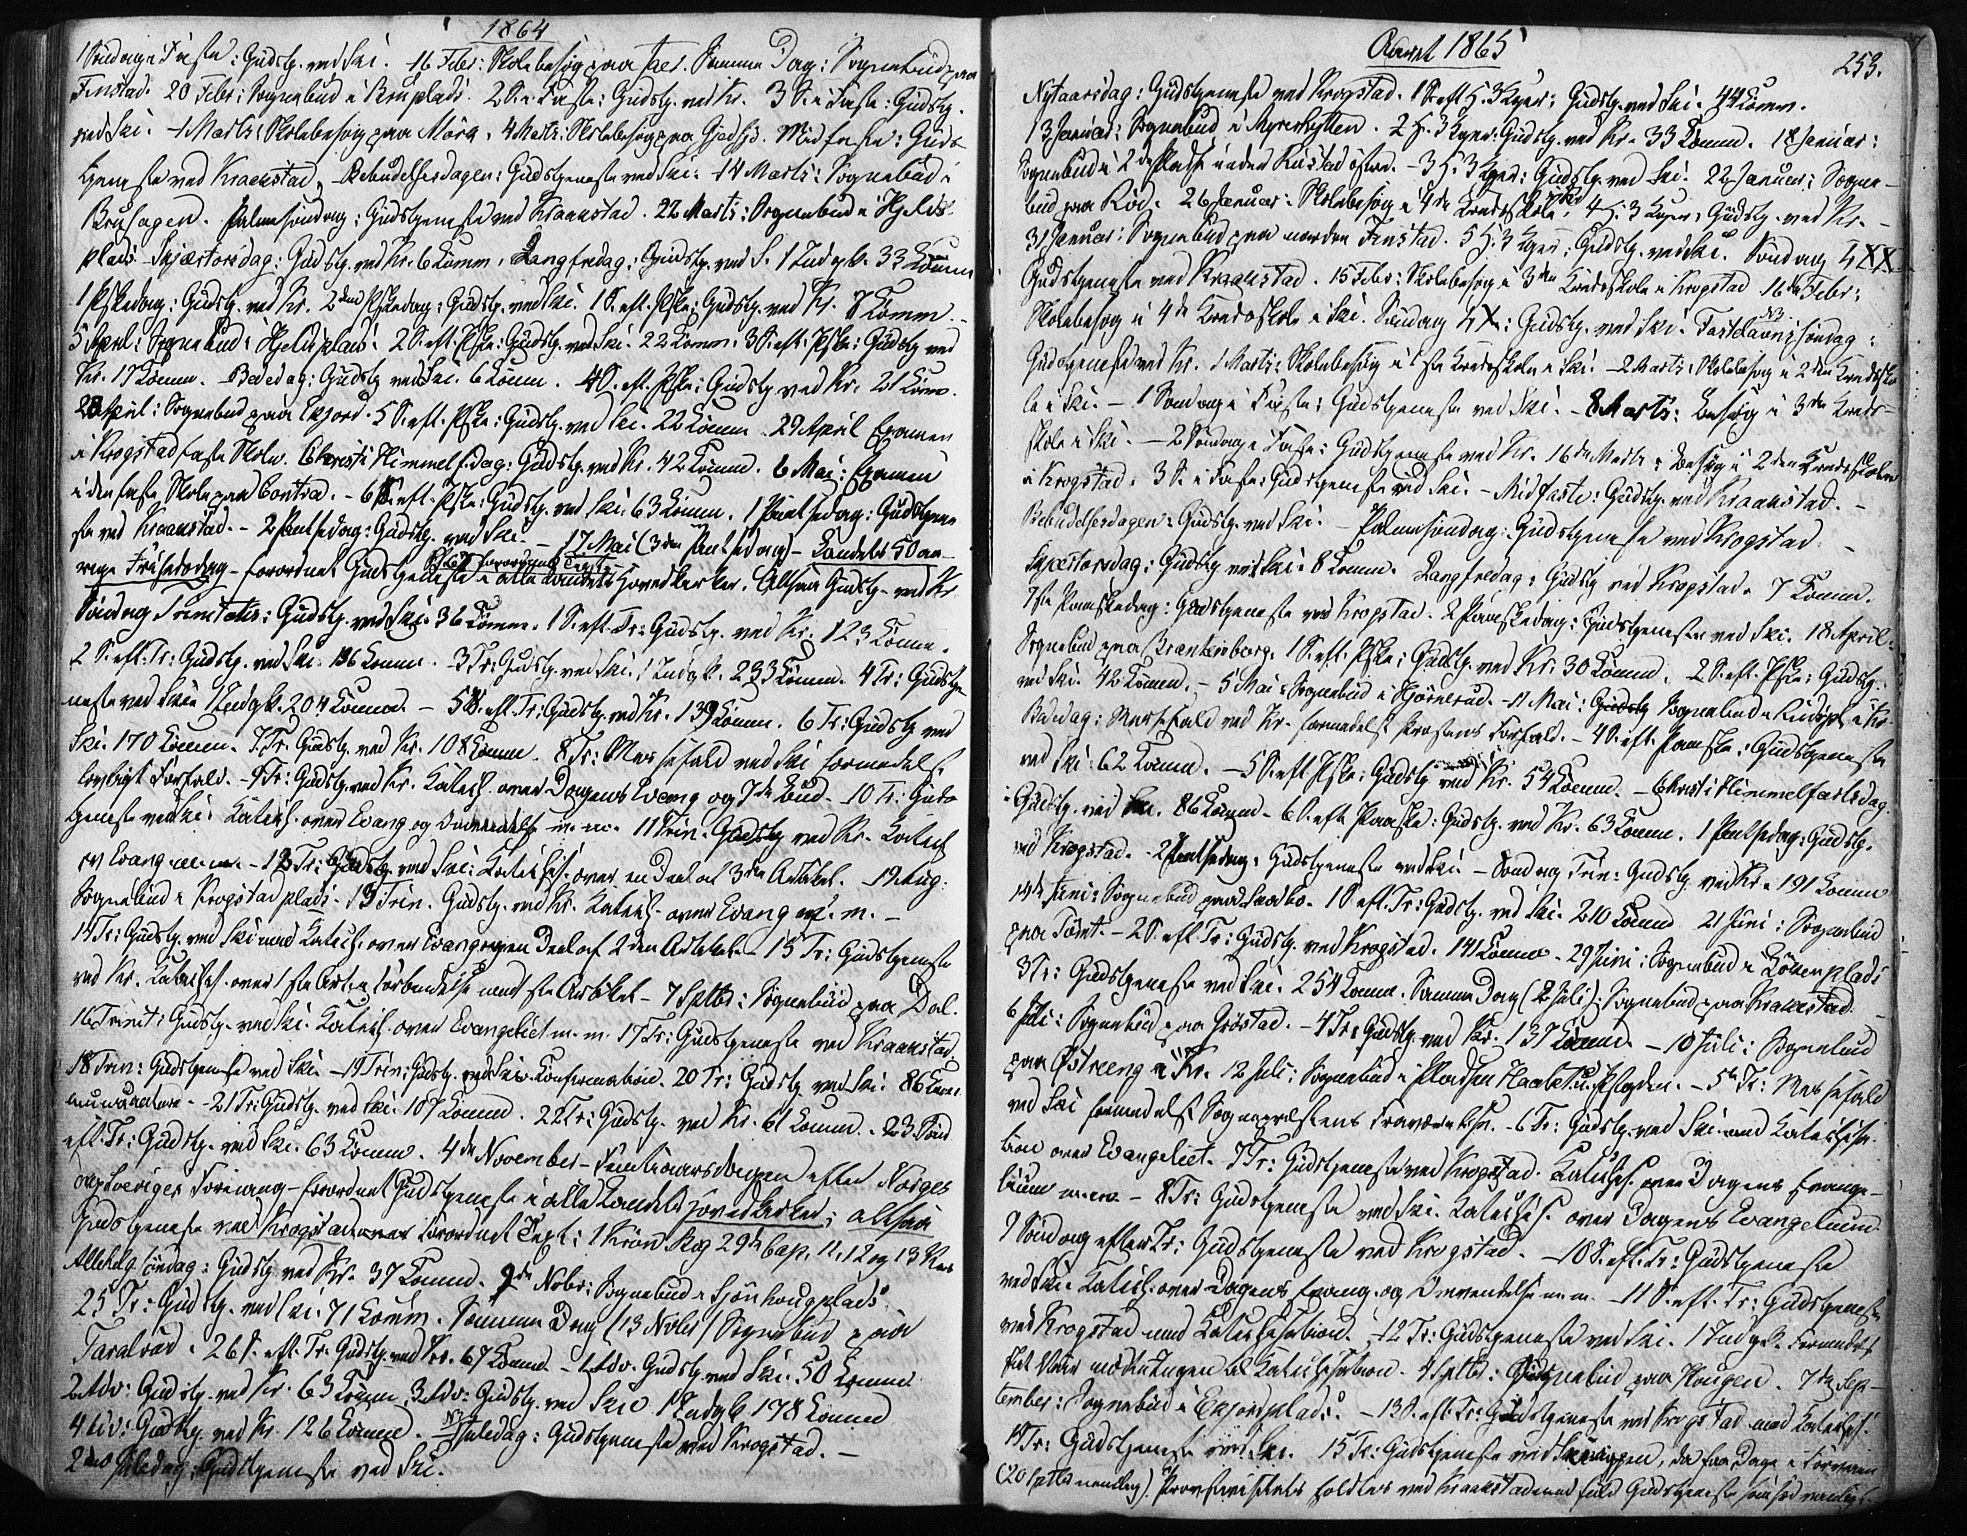 1864
1 Søndag i Faste: Gudstj. ved Ski. 16 Febr: Skolebesøg paa Samme Dag: Sognebud paa
Finstad. 20 Febr: Sognebud i Bruplads. 2 S. i Faste: Gudstj. ved Kr. 3 S. i Faste: Gudstj.
ved Ski. 1 Marts: Skolebesøg paa Mörk. 4 Marts: Skolebesøg paa Midfaste: Guds-
tjeneste ved Kraakstad. Bebudelsesdagen: Gudstjeneste ved Ski. 14 Marts: Sognebud i
Palmesøndag: Gudstjeneste ved Kraakstad. 22 Marts: Sognebud i Hjelms-
plads. Skjærtorsdag: Gudstj. ved Kr. 6 Komm. Langfredag: Gudstj. ved S. 1 Indgk. 33 Komm
1 Pskedag: Gudstj. ved Kr. 2den Pskedag: Gudstj. ved Ski. 1 S. eft. Pske: Gudstj. ved Kr. 8 Komm.
5 April: Sognebud i 2 S. eft. Pske: Gudstj. ved Ski. 22 Komm. 3 S. eft. Pske: Gudstj. ved
Kr. 17 Komm. Bededag: Gudstj. ved Ski. 6 Komm. 4 S. eft. Pske: Gudstj. ved Kr. 21 Kom.
April: Sognebud paa Ekjord. 5 S. eft. Pske: Gudstj. ved Ski. 22 Komm. 29 April Examen
i Krogstad faste Skole. Christi Himmelf.dag: Gudstj. ved Kr. 42 Komm. 6 Mai: Examen
i den faste Skole paa Contra. - 6 S. eft. Pske: Gudstj. ved Ski. 63 Komm. 1 Pintsedag: Gudstjene-
ste ved Kraakstad. - 2 Pintsedag: Gudstj. ved Ski. - 17 Mai (3den Pintsedag) - Landets 50 aa-
rige Frihedsdag - forordnet Gudstjeneste i alle Landets Hovedkirker. Altsaa Gudstj. ved Kr.
Søndag Trinitatis: Gudstj. ved Ski. 36 Komm. 1 S. eft. Tr: Gudstj. ved Kr. 123 Komm.
2 S. eft. Tr: Gudstj. ved Ski. 136 Komm. - 3 Tr: Gudstj. ved Ski. 1 Indgk. 233 Komm. 4 Tr: Gudstje-
neste ved Ski 1 Indgk. 204 Komm. - 5 S. eft. Tr: Gudstj. ved Kr. 139 Komm. 6 Tr: Gudstj. ved
Ski. 170 Komm. 7 Tr: Gudstj. ved Kr. 108 Komm. 8 Tr: Messefald ved Ski formedelst
lovligt Forfald. - 9 Tr: Gudstj. ved Kr. Katech. over Dagens Evang og 7de Bud. 10 Tr: Guds-
tjeneste ved Ski. Katech. over Evang og Omvendelse m. m. 11 Trin. Gudstj. ved Kr. Katech
ov Evang m. m. - 12 Tr: Gudstj. ved Ski: Katechis. over en Deel af 3die Artikel. - 19 Aug:
Sognebud i Krogstadplads. 13 Trin. Gudstj. ved Kr. Katech. over Evang m. m. -
14 Tr: Gudstj. ved Ski med Katech. over Evang og en Deel af 2den Artikel. - 15 Tr: Gudstjeneste
ved Kr. Katechis. over 1ste Art. i Forbindelse med Artikel - 7 Septbr: Sognebud paa Dal.
16 Trinit: Gudstj. ved Ski. Katech. over Evangeliet m. m. 17 Tr: Gudstjeneste ved Kraakstad.
18 Trin: Gudstjeneste ved Ski. - 19 Trin: Gudstj. ved Ski. Konfirmation. 20 Tr: Gudstj. ved Ski. 86 Kom-
munikanter. - 21 Tr: Gudstj. ved Ski. 107 Komm. 22 Tr: Gudstj. ved Kr. 61 Komm. 23 Sønd
eft. Tr: Gudstj. ved Ski. 63 Komm. 4de November - Femtiaarsdagen efter Norges
og Sveriges Forening - forordnet Gudstjeneste i alle Landets Hovedkirker; altsaa
Gudstjeneste ved Krogstad over forordnet Text: 1 Krøn Bog 29de Cap. 11, 12 og 13 Vers
Allehelg. Søndag: Gudstj. ved Kr. 37 Komm. 9de Novbr: Sognebud i
25 Tr: Gudstj. ved Ski. 71 Komm. Samme Dag (13 Novbr) Sognebud paa
Taralrud. 26 S. eft. Tr. Gudstj. ved Kr. 67 Komm. - 1 Adv. Gudstj. ved Ski. 50 Komm
2 Adv: Gudstj. ved Kr. 63 Komm. 3 Adv: Gudstj. ved Ski 1 Indgk 178 Komm
4 Adv: Gudstj. ved Kr. 126 Komm. - 1 Juledag: Gudstjeneste ved Krogstad. -
2den Juledag: Gudstjeneste ved Ski.
Aaret 1865
253.
Nytaarsdag: Gudstjeneste ved Krogstad. 1 S. eft H. 3 Kger: Gudstj. ved Ski. 44 Komm.
13 Januar: Sognebud i Myrerhytten. 2 S. H. 3 Kger: Gudstj. ved Kr. 33 Komm. 18 Januar:
Sognebud i 2de Pladse under Rustad østre. - 3 H. 3 Kger: Gudstj. ved Ski. 22 Januar: Sogne-
bud paa Rød. 26 Januar: Skolebesøg i 4de Kredsskole. 4 H. 3 Kger: Gudstj. ved Kr. -
31 Januar: Sognebud paa nordre Finstad. 5 H. 3 Kger: Gudstj. ved Ski. Søndag
Gudstjeneste ved Kraakstad. 15 Febr: Skolebesøg i 3die Kredsskole i Krogstad 16de Febr:
Skolebesøg i 4de Kredsskole i Ski. Søndag Gudstj. ved Ski. Fastelavnssøndag:
Gudstjeneste ved Kr. 1 Marts: Skolebesøg i 1ste Kredsskole i Ski. - 2 Marts: Skolebesøg i 2den Kredssko-
le i Ski. - 1 Søndag i Faste: Gudstjeneste ved Ski. - 8 Marts: Besøg i 3die Kreds-
skole i Ski. - 2 Søndag i Faste: Gudstjeneste ved Kr. 16de Marts: Besøg i 2den Kredsskole
i Krogstad. 3 S. i Faste: Gudstjeneste ved Ski. - Midfaste: Gudstj. ved Kraakstad. -
Bebudelsesdagen: Gudstj. ved Ski. - Palmesøndag: Gudstjeneste ved Krogstad. -
Skjærtorsdag: Gudstj. ved Ski. 8 Komm. Langfredag: Gudstj. ved Krogstad. 7 Komm.
1ste Paaskedag: Gudstjeneste ved Krogstad. 2 Paaskedag: Gudstjeneste ved Ski. 18 April:
Sognebud paa Brandenborg. 1 S. eft. Pske: Gudstj. ved Kr. 30 Komm. 2 S. eft. Pske: Gudstj.
ved Ski. 42 Komm. - 5 Mai: Sognebud i Hjörnerud. - 11 Mai: Sognebud i
Bededag: Messefald ved Kr. formedelst Præstens Forfald. - 4 S. eft. Paaske: Gudstjeneste
ved Ski. 62 Komm. - 5 S. eft. Pske: Gudstj. ved Kr. 54 Komm. - Christi Himmelfartsdag:
Gudstj. ved Ski. 86 Komm. - 6 S. eft. Paaske: Gudstj. ved Kr. 63 Komm. 1 Pintsedag: Gudstj.
ved Krogstad. - 2 Pintsedag: Gudstjeneste ved Ski. - Søndag Trin: Gudstj. ved Kr. 191 Komm
14de Juni: Sognebud paa 1 S. eft. Tr: Gudstj. ved Ski. 210 Komm 21 Juni: Sognebud
paa Tømt. - 2 S. eft Tr: Gudstj. ved Krogstad. 141 Komm. - 29 Juni: Sognebud i
3 Tr: Gudstjeneste ved Ski. 254 Komm. Samme Dag (2 Juli): Sognebud paa Kraakstad.
6 Juli: Sognebud paa Grøstad. - 4 Tr: Gudstj. ved Kr. 137 Komm. - 10 Juli: Sognebud
paa Østreeng i Kr. 12 Juli: Sognebud i Pladsen - 5te Tr: Messefald
ved Ski formedelst Sognepræstens Fraværelse. - 6 Tr: Gudstj. ved Ski med Katechisa-
tion over Evangeliet. 7 Tr: Gudstjeneste ved Krogstad. Katechis. over Dagens Evange-
lium m. m. - 8 Tr: Gudstjeneste ved Ski. Katechis. over Dagens Evangelium.
9 Søndag efter Tr: Gudstjeneste ved Krogstad. - 10 S. eft. Tr: Gudstjeneste
ved Ski. Katech. over Dagens Evang. og Omvendelse m. m. - 11 S. eft. Tr: Gudstjeneste
ved Krogstad med Katechisation. - 12 Tr: Gudstjeneste ved Ski. 1 Indgk. Formedelst
Katechisation. 4 Septbr: Sognebud paa Haugen. 7de Sep-
tember: Sognebud i Ekjordplads. - 13 S. eft. Tr: Gudstjeneste ved Krogstad med Katechis.
14 Tr: Gudstjeneste ved Ski. 15 Tr: Gudstjeneste ved da faa Dage i Forveien
(20 Septbr nemlig) Provstivisitats holdtes ved Kraakstad med fuld Gudstjeneste